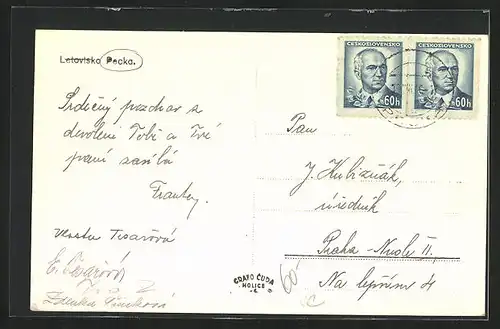 Letovisko Pecka.
Srdečný pozdrav z
dovolené Tobě a Tvé
paní zasílá
Franta
Vlasta Tesařová
E. Tesařová
Zdenka
ČESKOSLOVENSKO ČESKOSLOVENSKO
60h 60h
Pan
J. Kubizňák,
úředník
Praha - Nusle II.
Na
GRAFO ČUDA
HOLICE
60